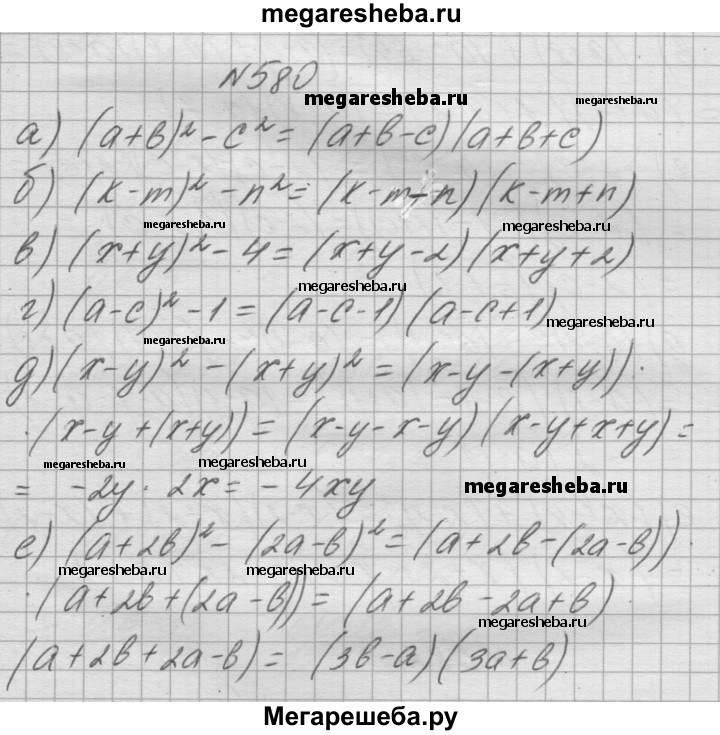 megaresheba.ru
N580
megaresheba.ru
megaresheba.ru
а) (a+b)² - c² = (a+b-c)(a+b+c)
б) (k-m)² - n² = (k-m-n)(k-m+n)
megaresheba.ru
megaresheba.ru
в) (x+y)² - 4 = (x+y-2)(x+y+2)
megaresheba.ru
г) (a-c)² - 1 = (a-c-1)(a-c+1)
megaresheba.ru
megaresheba.ru
д) (x-y)² - (x+y)² = (x-y-(x+y))·
·(x-y+(x+y)) = (x-y-x-y)(x-y+x+y) =
megaresheba.ru
megaresheba.ru
= -2y · 2x = -4xy
megaresheba.ru
е) (a+2b)² - (2a-b)² = (a+2b-(2a-b))·
megaresheba.ru
megaresheba.ru
·(a+2b+(2a-b)) = (a+2b-2a+b)·
megaresheba.ru
(a+2b+2a-b) = (3b-a)(3a+b)
Мегарешеба.ру